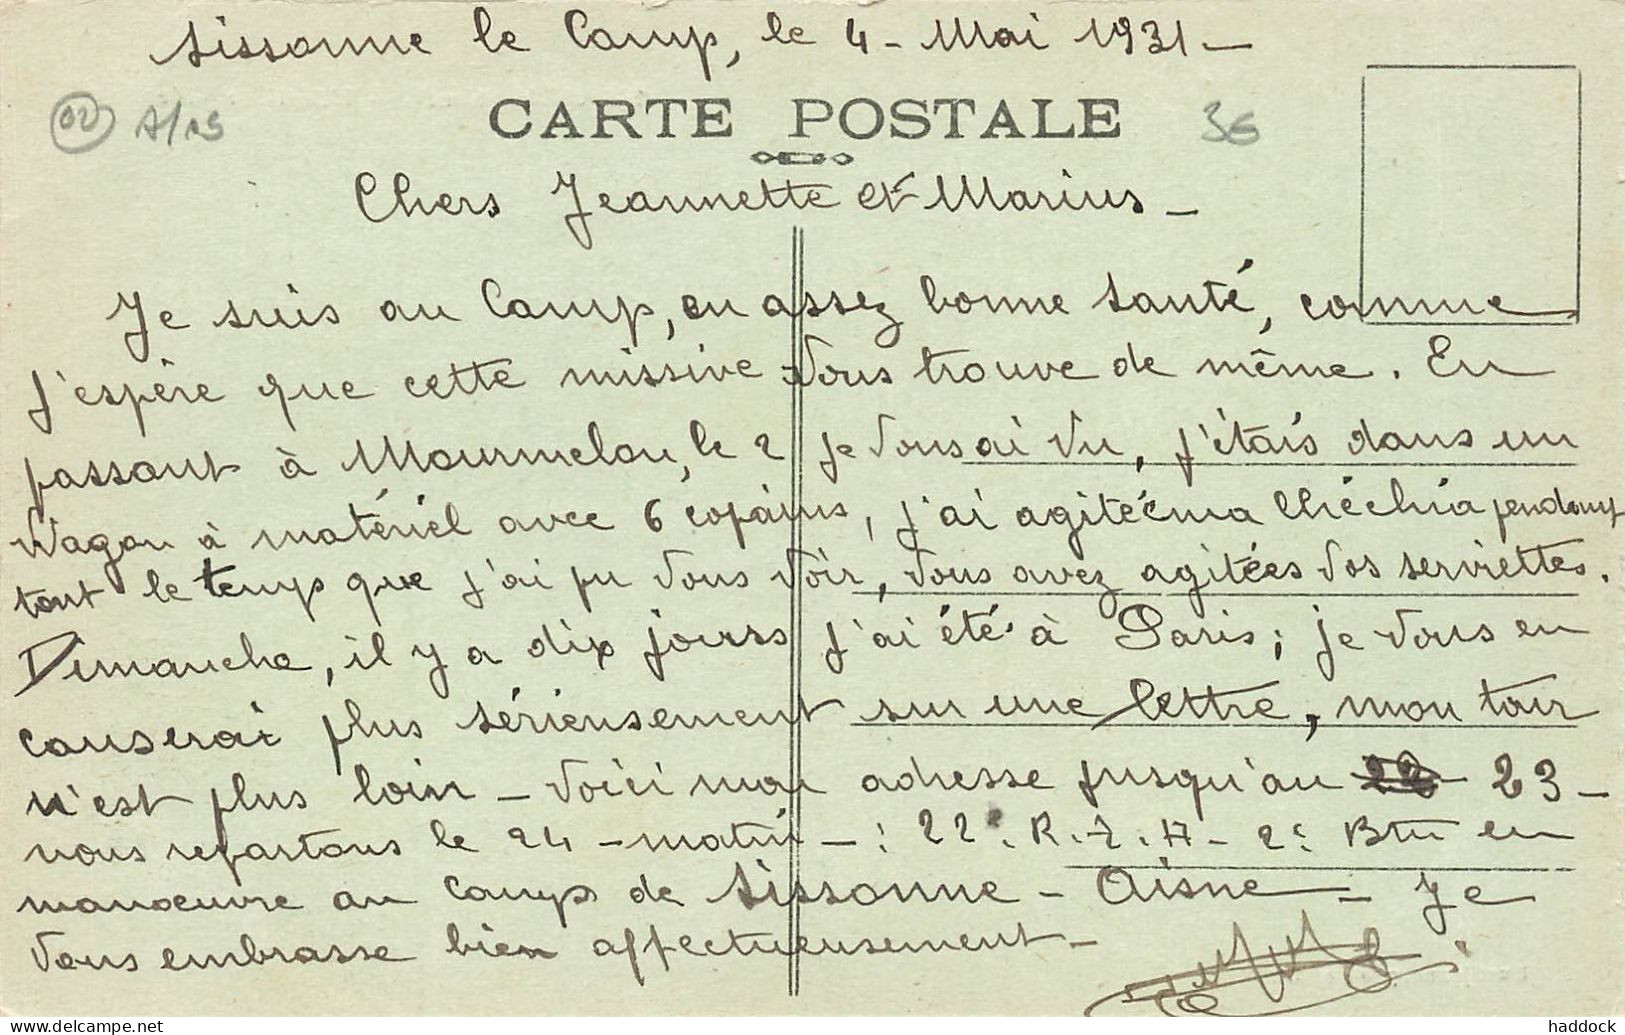 Sissonne le Camp, le 4 - Mai 1931 -
02
CARTE POSTALE
36
Chers Jeannette et Marius -
Je suis au Camp, en assez bonne santé, comme
j'espère que cette missive vous trouve de même. En
passant à Mourmelon, le 2 je vous ai vu, j'étais dans un
Wagon à matériel avec 6 copains, j'ai agité ma chéchia pendant
tout le temps que j'ai pu vous voir, vous avez agitées vos serviettes.
Dimanche, il y a dix jours j'ai été à Paris; je vous en
causerai plus sérieusement sur une lettre, mon tour
n'est plus loin - Voici mon adresse jusqu'au 22 23 -
nous repartons le 24 - matin - : 22e. R.I.A - 2e Btn en
manoeuvre au Camp de Sissonne - Aisne - Je
vous embrasse bien affectueusement -
delcampe.net
haddock